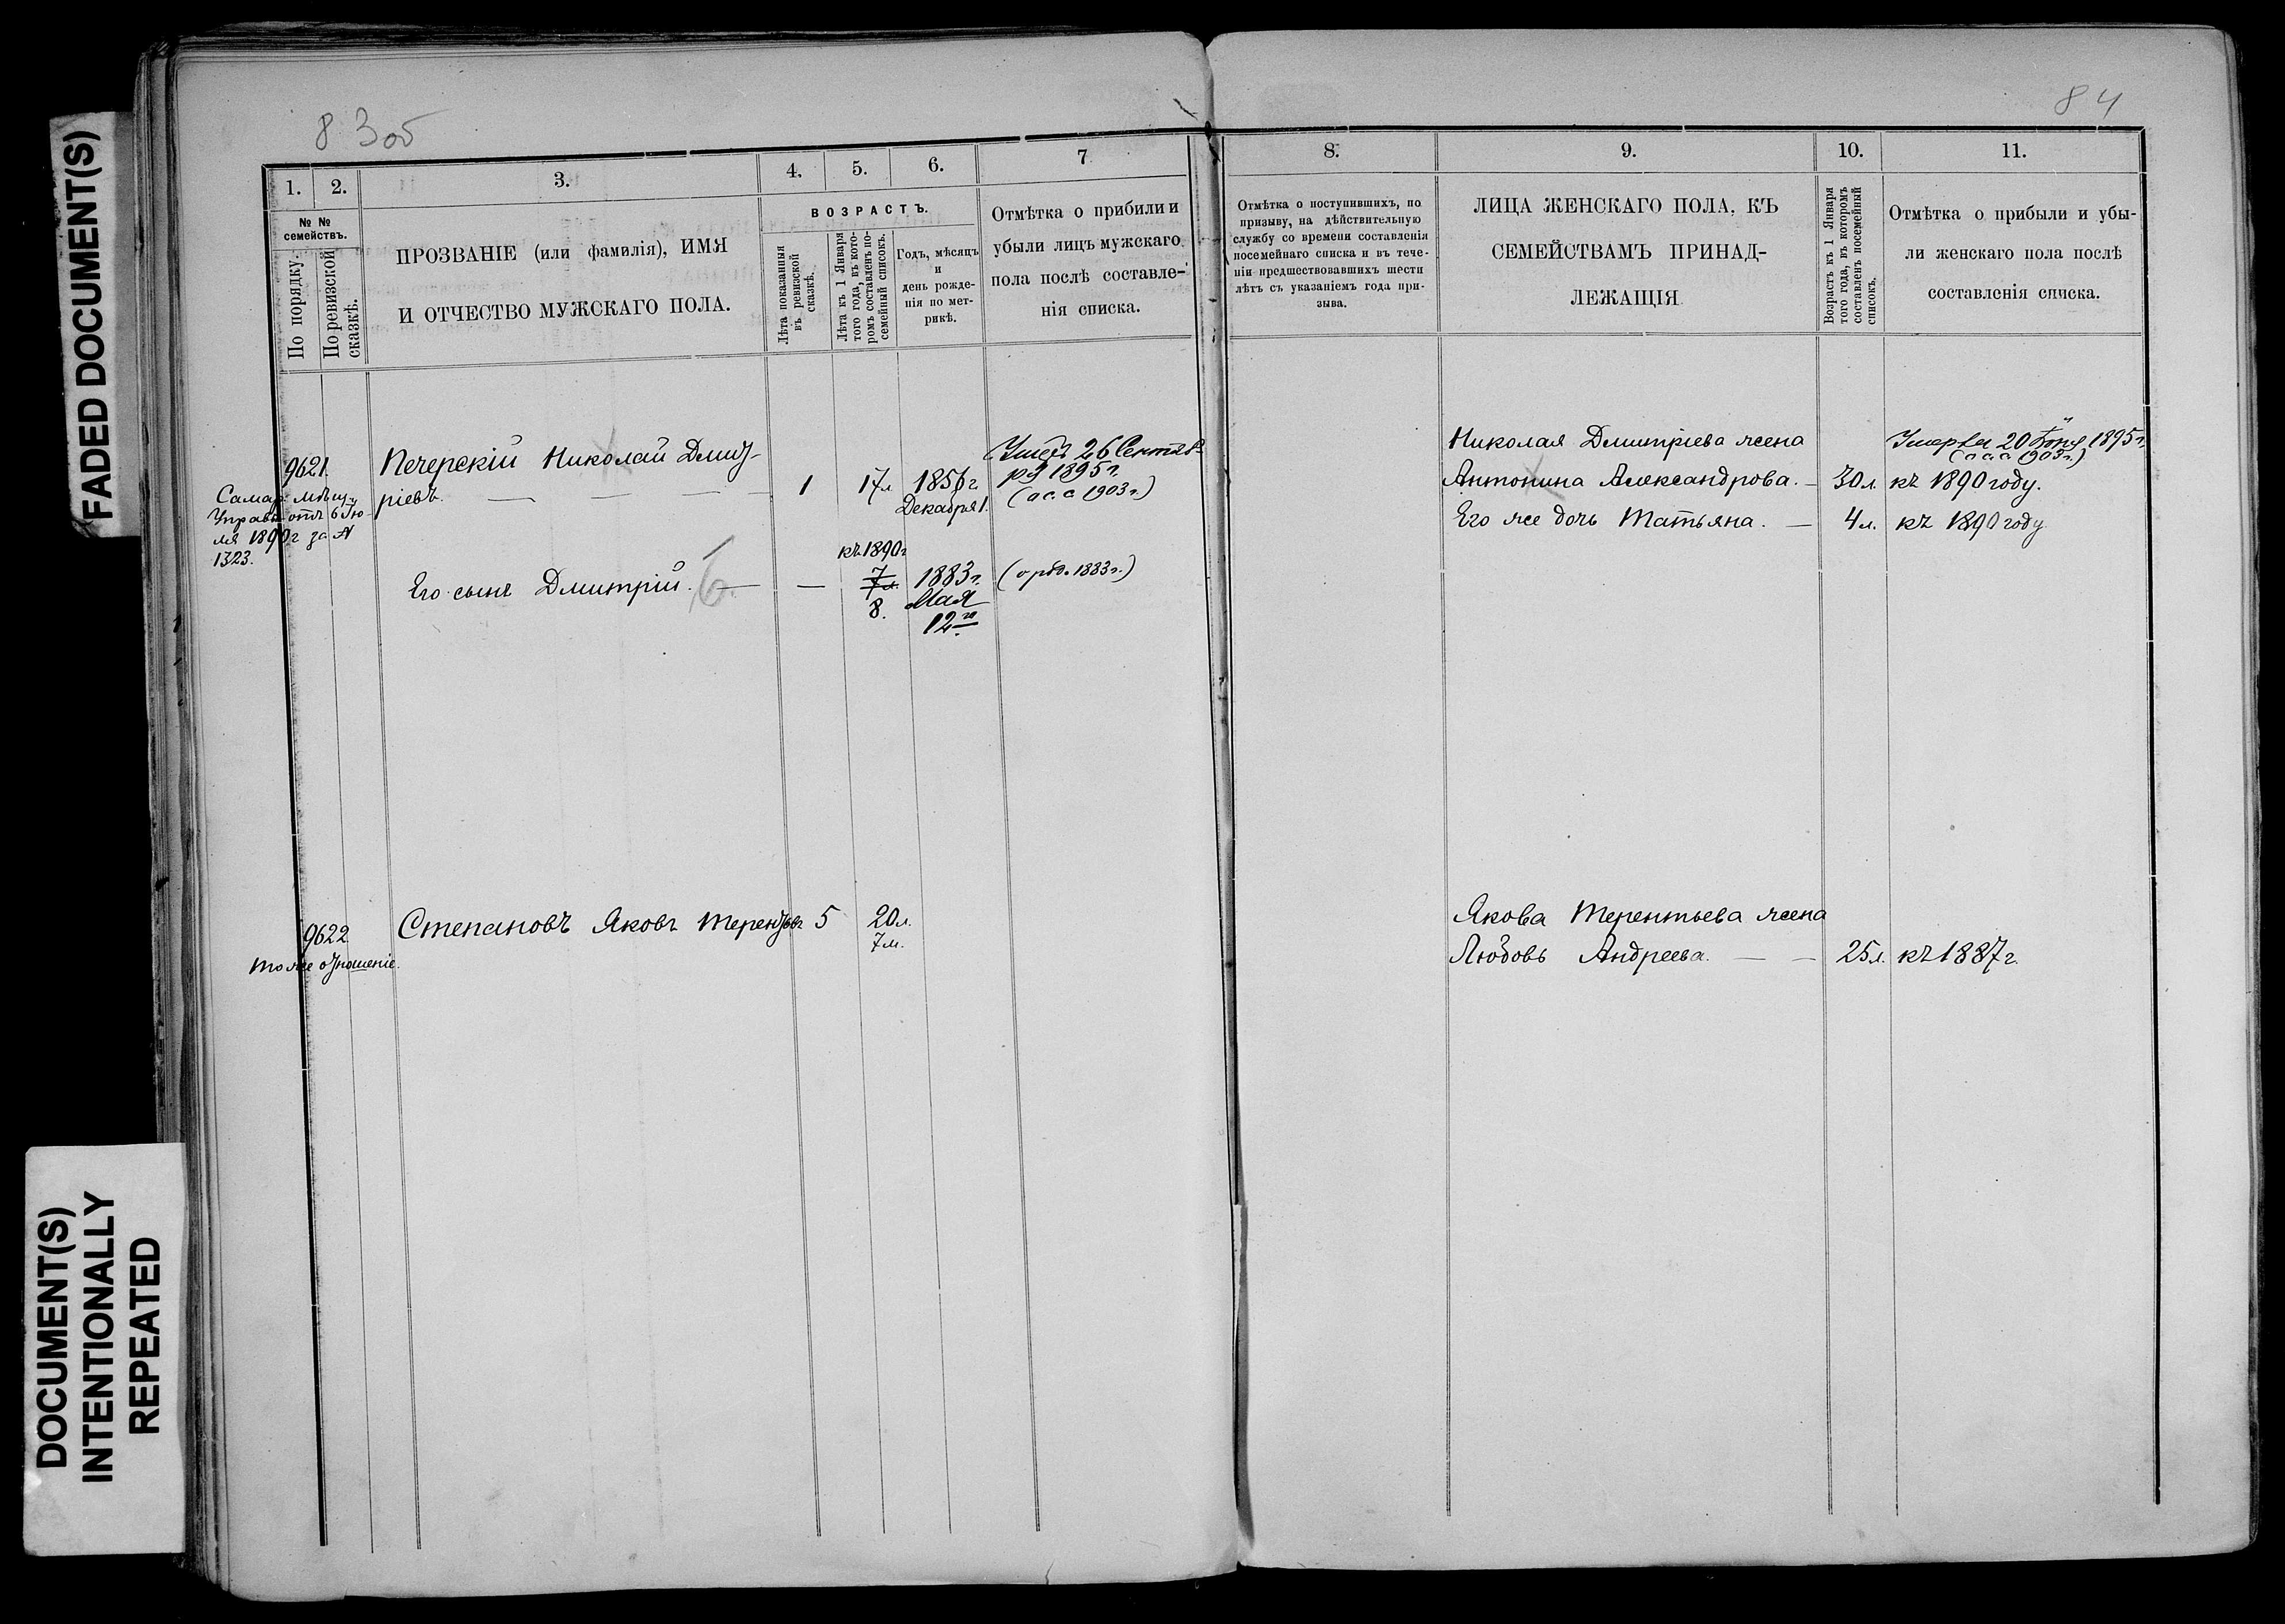 FADED DOCUMENT(S)
DOCUMENT(S)
INTENTIONALLY
REPEATED
83 об
1.
2.
3.
4.
5.
6.
7
№ №
семействъ.
По порядку.
По ревизской
сказкѣ.
ПРОЗВАНІЕ (или фамилія), ИМЯ
И ОТЧЕСТВО МУЖСКАГО ПОЛА.
ВОЗРАСТЪ.
Лѣта показанныя
въ ревизской
сказкѣ.
Лѣта къ 1 Января
того года, въ кото-
ромъ составленъ по-
семейный списокъ.
Годъ, мѣсяцъ
и
день рожде-
нія по мет-
рикѣ.
Отмѣтка о прибыли и
убыли лицъ мужскаго
пола послѣ составле-
нія списка.
9621.
Самар. мѣщ.
Управы отъ 6 Ію-
ля 1890 г за №
1323.
Печерскій Николай Дмит-
ріевъ.
1
17 л
1856 г.
Декабря 1.
26 Сентяб-
ря 1895 г.
1903 г.)
Его сынъ Дмитрій.
къ 1890 г
7 л.
8.
1883 г.
Мая
12 го
1883 г.)
9622
тоже отношеніе.
Степановъ Яковъ Терентьевъ
5
20 л.
7 м.
84
8.
9.
10.
11.
Отмѣтка о поступившихъ, по
призыву, на дѣйствительную
службу со времени составленія
посемейнаго списка и въ тече-
ніи предшествовавшихъ шести
лѣтъ съ указаніемъ года при-
зыва.
ЛИЦА ЖЕНСКАГО ПОЛА, КЪ
СЕМЕЙСТВАМЪ ПРИНАД-
ЛЕЖАЩІЯ
Возрастъ къ 1 Января
того года, въ которомъ
составленъ посемейный
списокъ.
Отмѣтка о прибыли и убы-
ли женскаго пола послѣ
составленія списка.
Николая Дмитріева жена
Антонина Александрова.
30 л.
Умерла 20 1895 г.
1903 г.)
къ 1890 году.
Его же дочь Татьяна.
4 л.
къ 1890 году
Якова Терентьева жена
Любовь Андреева.
25 л.
къ 1887 г.